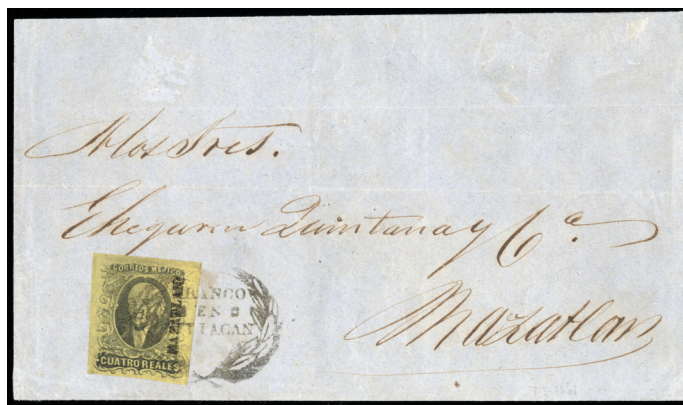 A los Sres.
Echeguren Quintana y Ca.
Mazatlan
CORREOS MEJICO
MAZATLAN
CUATRO REALES
FRANCO
EN
CULIACAN